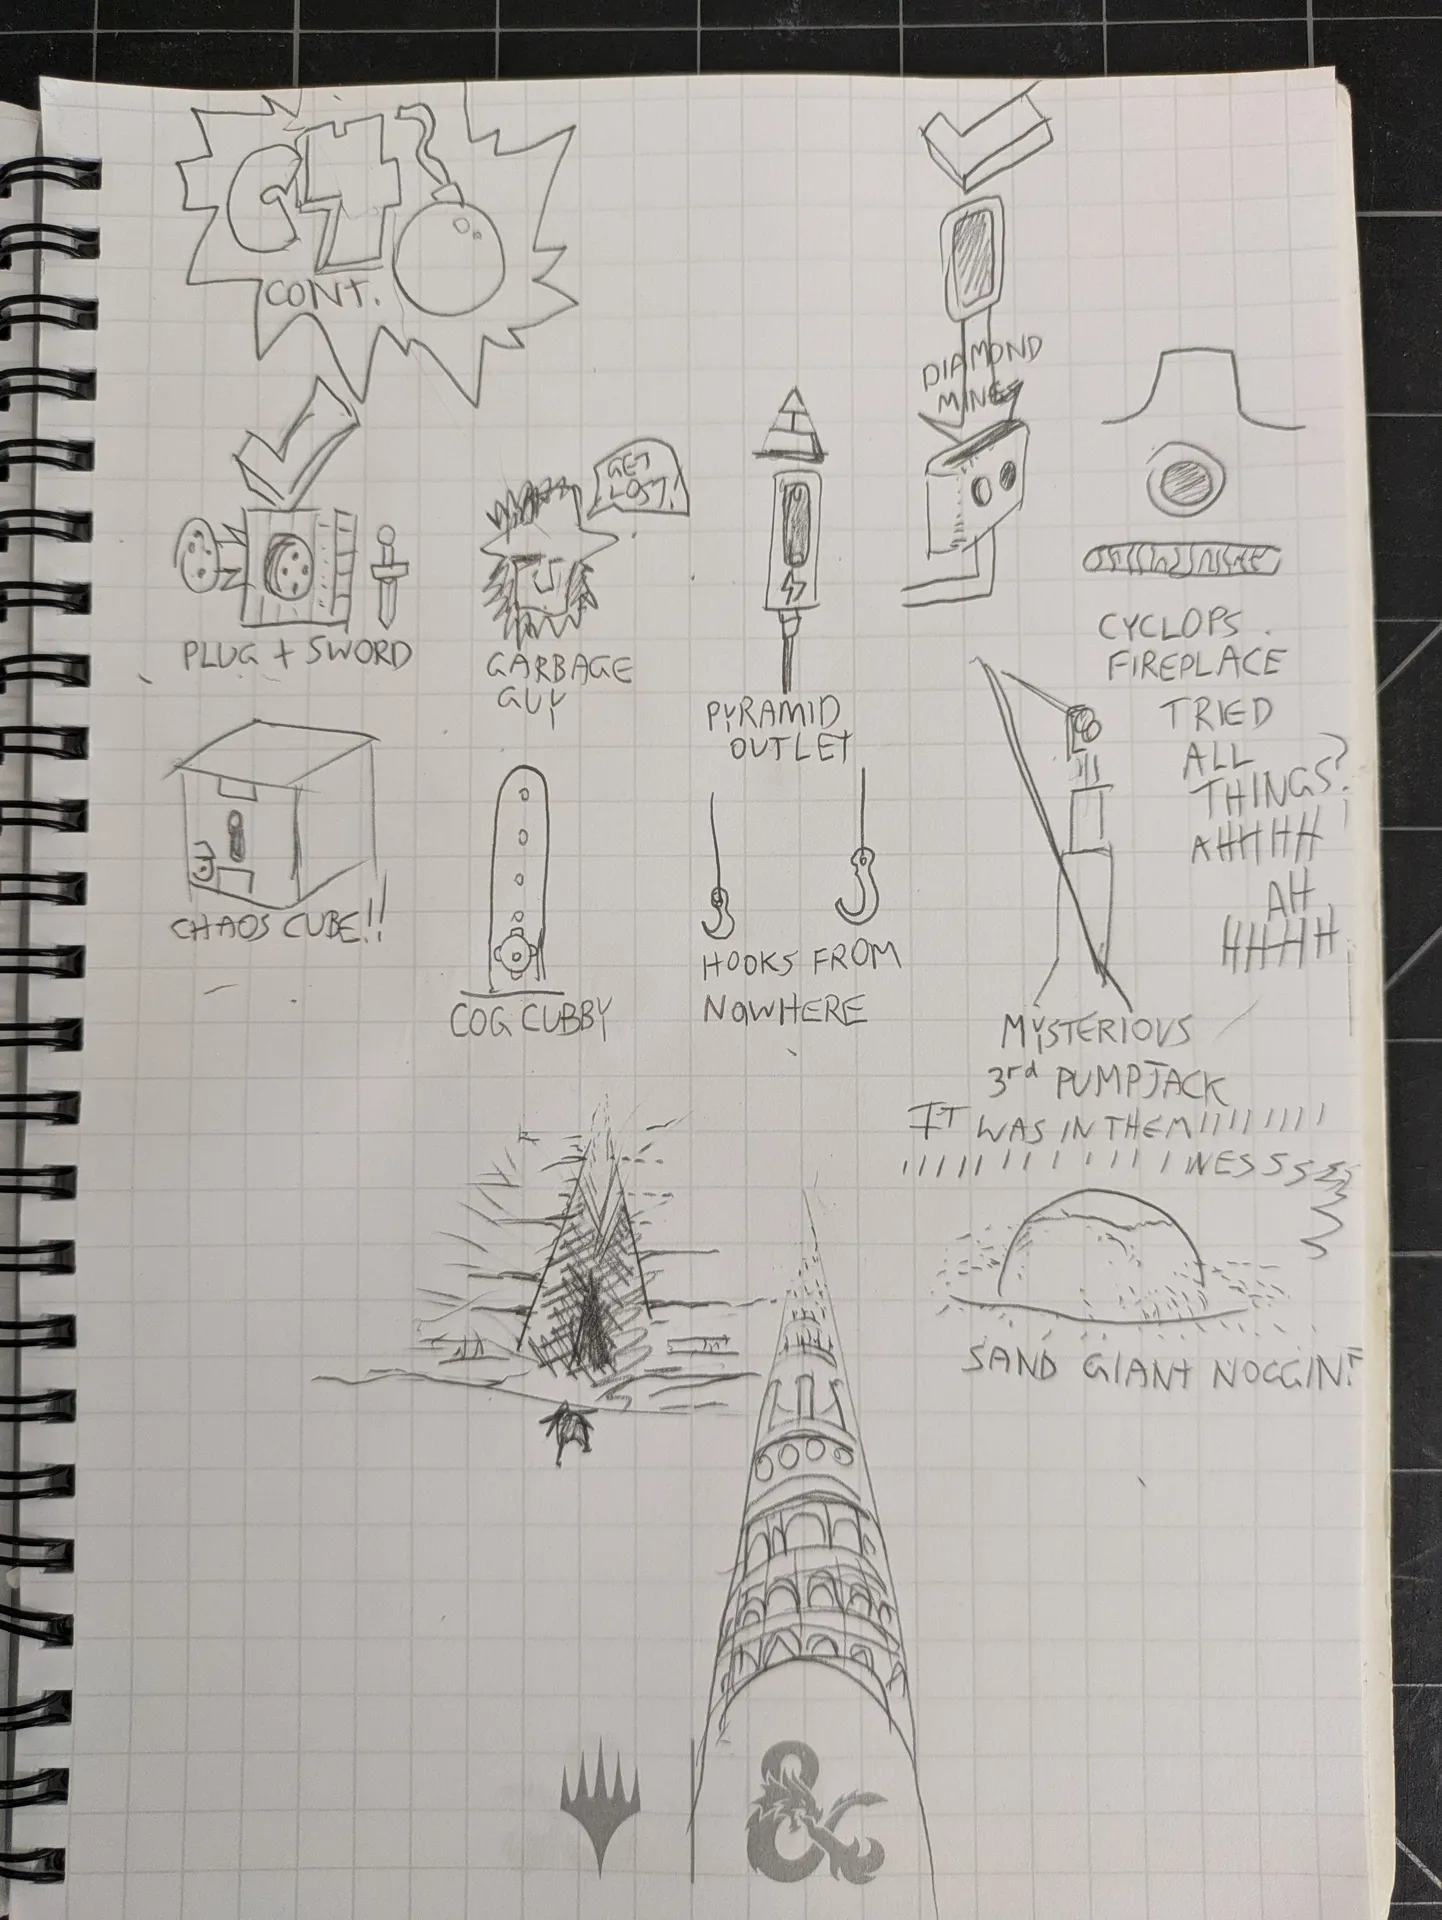 CONT.
DIAMOND
MINES
GET
LOST!
PLUG + SWORD
GARBAGE
GUY
PYRAMID
OUTLET
CYCLOPS
FIREPLACE
TRIED
ALL
THINGS?
AHHHH
AH
HHHH
CHAOS CUBE!!
COG CUBBY
HOOKS FROM
NOWHERE
MYSTERIOUS
3rd PUMPJACK
IT WAS IN THEM
INESSSSSS
SAND GIANT NOGGIN?